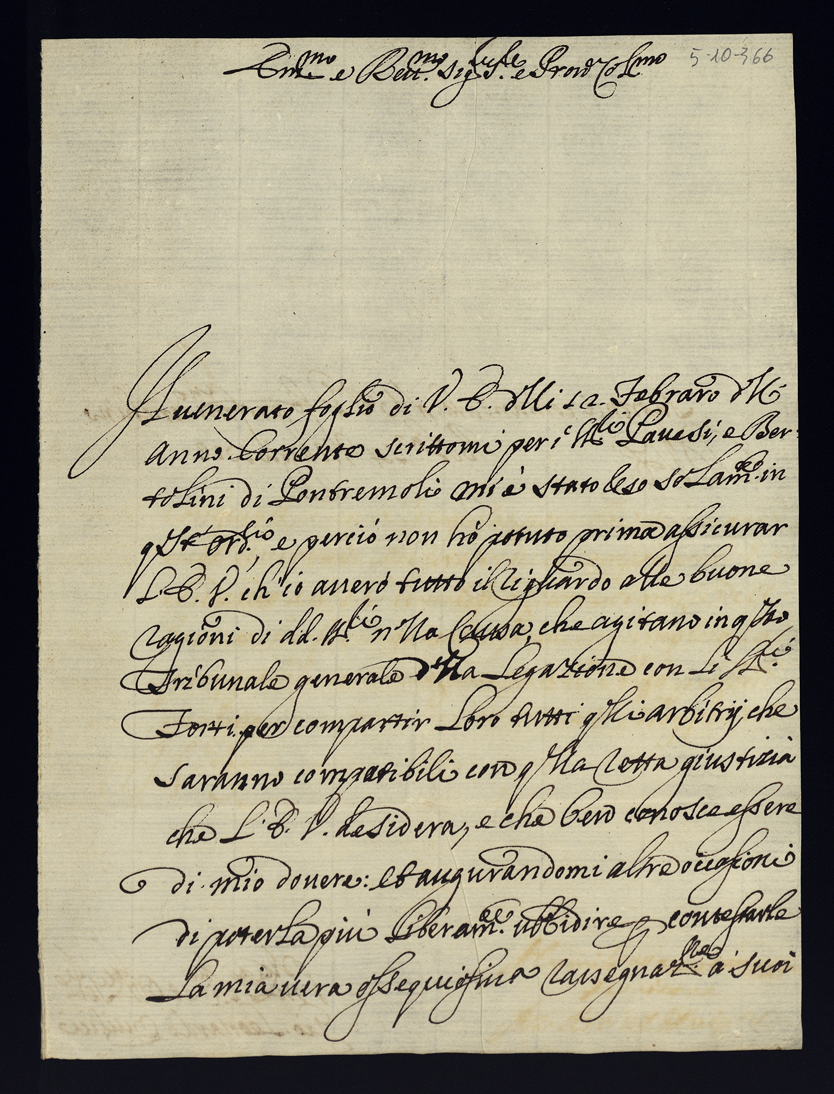 Em.mo e Rev.mo Sig.r Sig.r e Pron Col.mo
5-10-366
Il uenerato foglio di V. E. delli 12. Febraro dell
anno corrente scrittomi per i SS.ri Pauesi, e Ber-
tolini di Pontremoli mi è stato reso solam.te in
q.sto ord.rio, e perciò non hò potuto prima assicurar
L'E. V. ch'io auerò tutto il riguardo alle buone
ragioni di dd. SS.ri nella Causa, che agitano in q.sto
Tribunale generale della Legazione con li SS.ri
Forti, per compartir loro tutti q.lli arbitrij, che
saranno compatibili con q.lla retta giustizia
che L'E. V. desidera, e che ben conosce essere
di mio douere: et augurandomi altre occasioni
di poterla più liberam.te ubbidire e contestarle
la mia uera ossequiosima rassegnaz.ne a' suoi